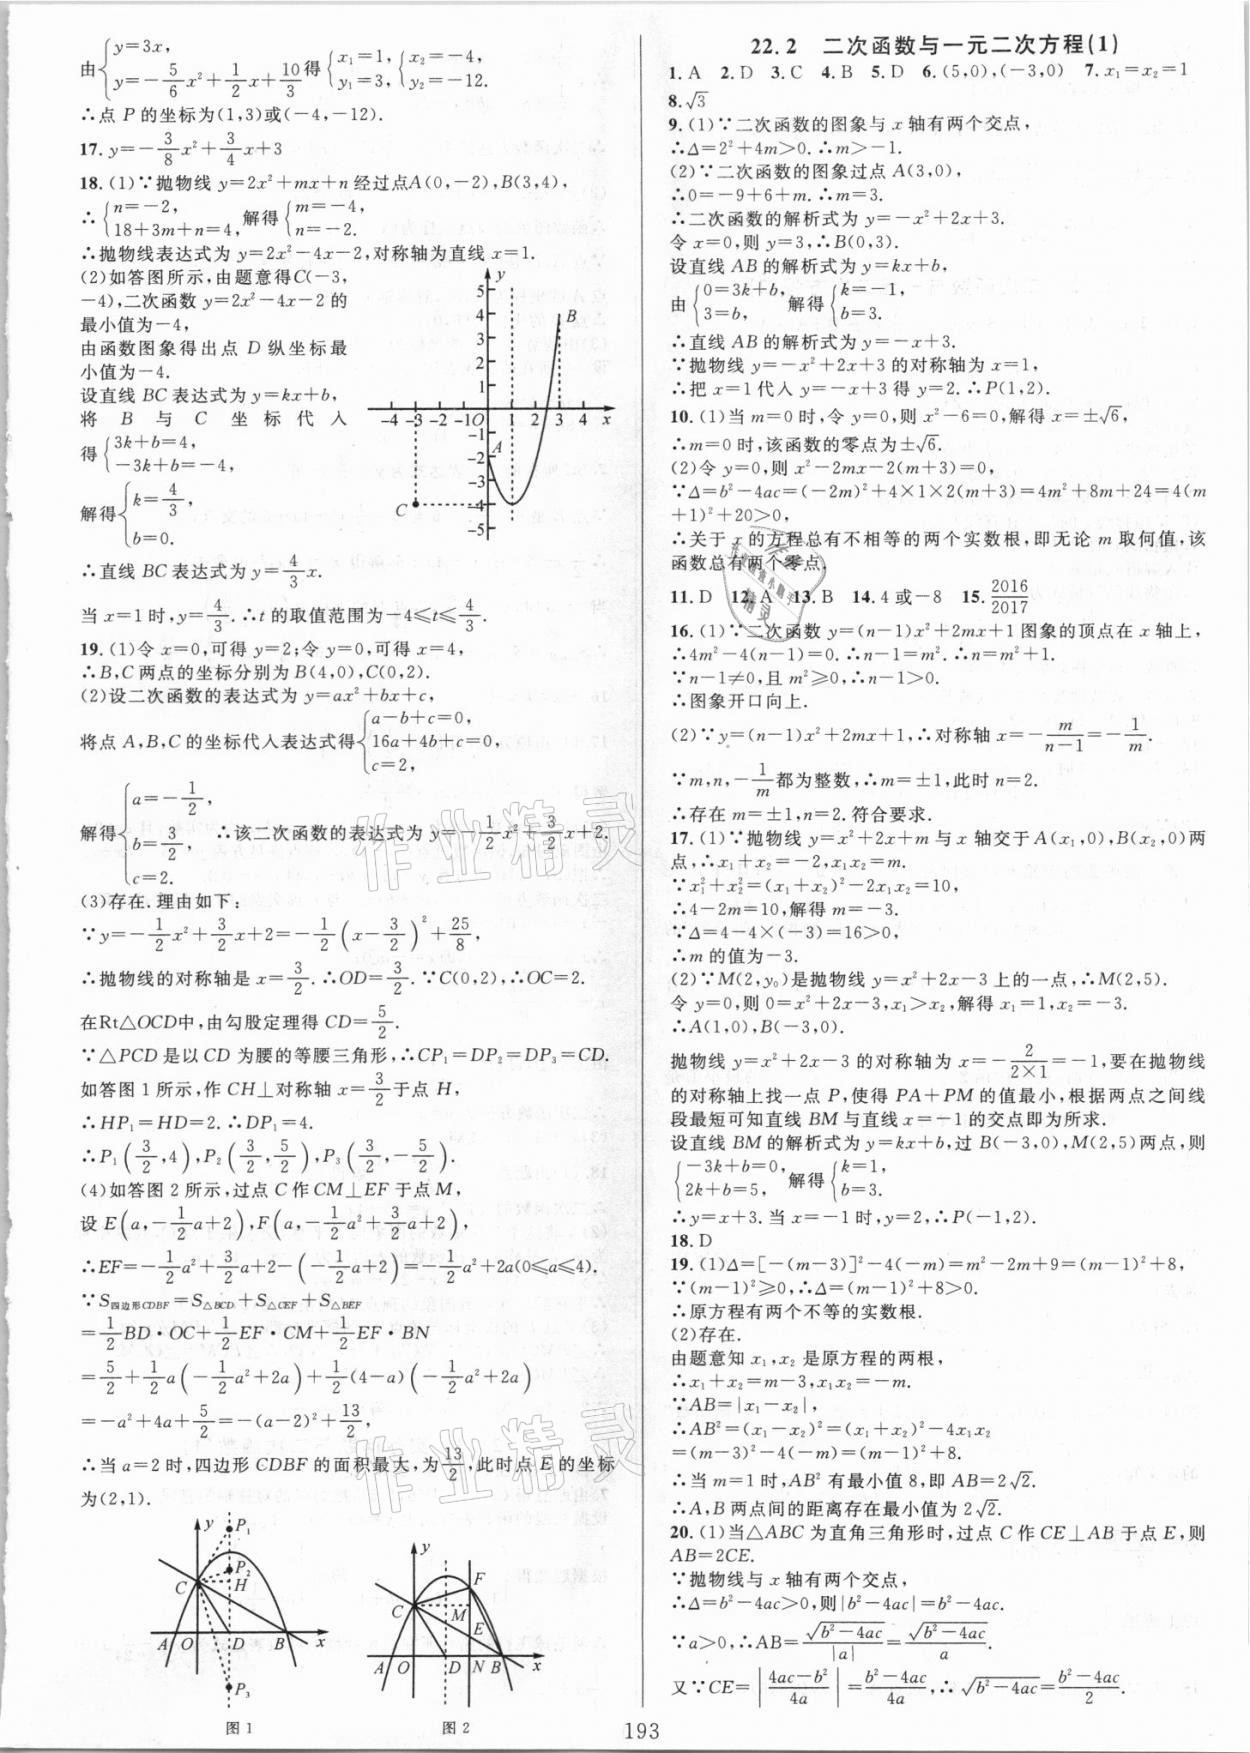 由{y=3x, y=-5/6x²+1/2x+10/3 得 {x₁=1, y₁=3, {x₂=-4, y₂=-12.
∴点 P 的坐标为(1,3)或(-4,-12).
17. y=-3/8x²+3/4x+3
18. (1)∵抛物线 y=2x²+mx+n 经过点A(0,-2),B(3,4),
∴{n=-2, 18+3m+n=4, 解得{m=-4, n=-2.
∴抛物线表达式为 y=2x²-4x-2,对称轴为直线 x=1.
(2)如答图所示,由题意得C(-3,
-4),二次函数 y=2x²-4x-2 的
最小值为-4,
由函数图象得出点 D 纵坐标最
小值为-4.
设直线 BC 表达式为 y=kx+b,
将 B 与 C 坐标代入
得{3k+b=4, -3k+b=-4,
解得{k=4/3, b=0.
∴直线 BC 表达式为 y=4/3x.
当 x=1 时,y=4/3.∴t 的取值范围为-4≤t≤4/3.
y
5
4
3
2
1
-4 -3 -2 -1 O 1 2 3 4 x
-1
-2
-3
-4
-5
A
B
C
19. (1)令 x=0,可得 y=2;令 y=0,可得 x=4,
∴B,C 两点的坐标分别为 B(4,0),C(0,2).
(2)设二次函数的表达式为 y=ax²+bx+c,
将点 A,B,C 的坐标代入表达式得{a-b+c=0, 16a+4b+c=0, c=2,
解得{a=-1/2, b=3/2, c=2. ∴该二次函数的表达式为 y=-1/2x²+3/2x+2.
(3)存在.理由如下:
∵y=-1/2x²+3/2x+2=-1/2(x-3/2)²+25/8,
∴抛物线的对称轴是 x=3/2.∴OD=3/2.∵C(0,2),∴OC=2.
在Rt△OCD中,由勾股定理得 CD=5/2.
∵△PCD 是以 CD 为腰的等腰三角形,∴CP₁=DP₂=DP₃=CD.
如答图 1 所示,作 CH⊥对称轴 x=3/2于点 H,
∴HP₁=HD=2.∴DP₁=4.
∴P₁(3/2,4),P₂(3/2,5/2),P₃(3/2,-5/2).
(4)如答图 2 所示,过点 C 作 CM⊥EF 于点 M,
设 E(a,-1/2a+2),F(a,-1/2a²+3/2a+2),
∴EF=-1/2a²+3/2a+2-(-1/2a+2)=-1/2a²+2a(0≤a≤4).
∵S四边形CDBF=S△BCD+S△CEF+S△BEF
=1/2BD·OC+1/2EF·CM+1/2EF·BN
=5/2+1/2a(-1/2a²+2a)+1/2(4-a)(-1/2a²+2a)
=-a²+4a+5/2=-(a-2)²+13/2,
∴当 a=2 时,四边形 CDBF 的面积最大,为13/2,此时点 E 的坐标
为(2,1).
y P₁
C P₂
H
A O D B x
P₃
图 1
y
F
C M
E
A O D N B x
图 2
22.2 二次函数与一元二次方程(1)
1. A 2. D 3. C 4. B 5. D 6. (5,0),(-3,0) 7. x₁=x₂=1
8. √3
9. (1)∵二次函数的图象与 x 轴有两个交点,
∴Δ=2²+4m>0.∴m>-1.
(2)∵二次函数的图象过点 A(3,0),
∴0=-9+6+m.∴m=3.
∴二次函数的解析式为 y=-x²+2x+3.
令 x=0,则 y=3,∴B(0,3).
设直线 AB 的解析式为 y=kx+b,
由{0=3k+b, 3=b, 解得{k=-1, b=3.
∴直线 AB 的解析式为 y=-x+3.
∵抛物线 y=-x²+2x+3 的对称轴为 x=1,
∴把 x=1 代入 y=-x+3 得 y=2.∴P(1,2).
10. (1)当 m=0 时,令 y=0,则 x²-6=0,解得 x=±√6,
∴m=0 时,该函数的零点为±√6.
(2)令 y=0,则 x²-2mx-2(m+3)=0,
∵Δ=b²-4ac=(-2m)²+4×1×2(m+3)=4m²+8m+24=4(m
+1)²+20>0,
∴关于 x 的方程总有不相等的两个实数根,即无论 m 取何值,该
函数总有两个零点.
11. D 12. A 13. B 14. 4 或-8 15. 2016/2017
16. (1)∵二次函数 y=(n-1)x²+2mx+1 图象的顶点在 x 轴上,
∴4m²-4(n-1)=0.∴n-1=m².∴n=m²+1.
∵n-1≠0,且 m²≥0,∴n-1>0.
∴图象开口向上.
(2)∵y=(n-1)x²+2mx+1,∴对称轴 x=-m/(n-1)=-1/m.
∵m,n,-1/m都为整数,∴m=±1,此时 n=2.
∴存在 m=±1,n=2.符合要求.
17. (1)∵抛物线 y=x²+2x+m 与 x 轴交于 A(x₁,0),B(x₂,0)两
点,∴x₁+x₂=-2,x₁x₂=m.
∵x₁²+x₂²=(x₁+x₂)²-2x₁x₂=10,
∴4-2m=10,解得 m=-3.
∵Δ=4-4×(-3)=16>0,
∴m 的值为-3.
(2)∵M(2,y₀)是抛物线 y=x²+2x-3 上的一点,∴M(2,5).
令 y=0,则 0=x²+2x-3,x₁>x₂,解得 x₁=1,x₂=-3.
∴A(1,0),B(-3,0).
抛物线 y=x²+2x-3 的对称轴为 x=-2/(2×1)=-1,要在抛物线
的对称轴上找一点 P,使得 PA+PM 的值最小,根据两点之间线
段最短可知直线 BM 与直线 x=-1 的交点即为所求.
设直线 BM 的解析式为 y=kx+b,过 B(-3,0),M(2,5)两点,则
{-3k+b=0, 2k+b=5, 解得{k=1, b=3.
∴y=x+3.当 x=-1 时,y=2,∴P(-1,2).
18. D
19. (1)Δ=[-(m-3)]²-4(-m)=m²-2m+9=(m-1)²+8,
∵(m-1)²≥0,∴Δ=(m-1)²+8>0.
∴原方程有两个不等的实数根.
(2)存在.
由题意知 x₁,x₂ 是原方程的两根,
∴x₁+x₂=m-3,x₁x₂=-m.
∵AB=|x₁-x₂|,
∴AB²=(x₁-x₂)²=(x₁+x₂)²-4x₁x₂
=(m-3)²-4(-m)=(m-1)²+8.
∴当 m=1 时,AB² 有最小值 8,即 AB=2√2.
∴A,B 两点间的距离存在最小值为 2√2.
20. (1)当△ABC 为直角三角形时,过点 C 作 CE⊥AB 于点 E,则
AB=2CE.
∵抛物线与 x 轴有两个交点,
∴Δ=b²-4ac>0,则|b²-4ac|=b²-4ac.
∵a>0,∴AB=√(b²-4ac)/|a|=√(b²-4ac)/a.
又∵CE=|(4ac-b²)/4a|=(b²-4ac)/4a,∴√(b²-4ac)=(b²-4ac)/2.
193
作业精灵
作业精灵